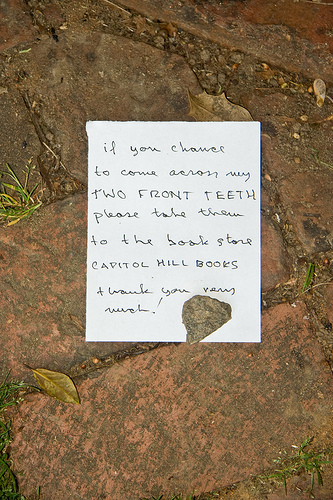 if you chance
to come across my
TWO FRONT TEETH
please take them
to the book store
CAPITOL HILL BOOKS
thank you very
much!